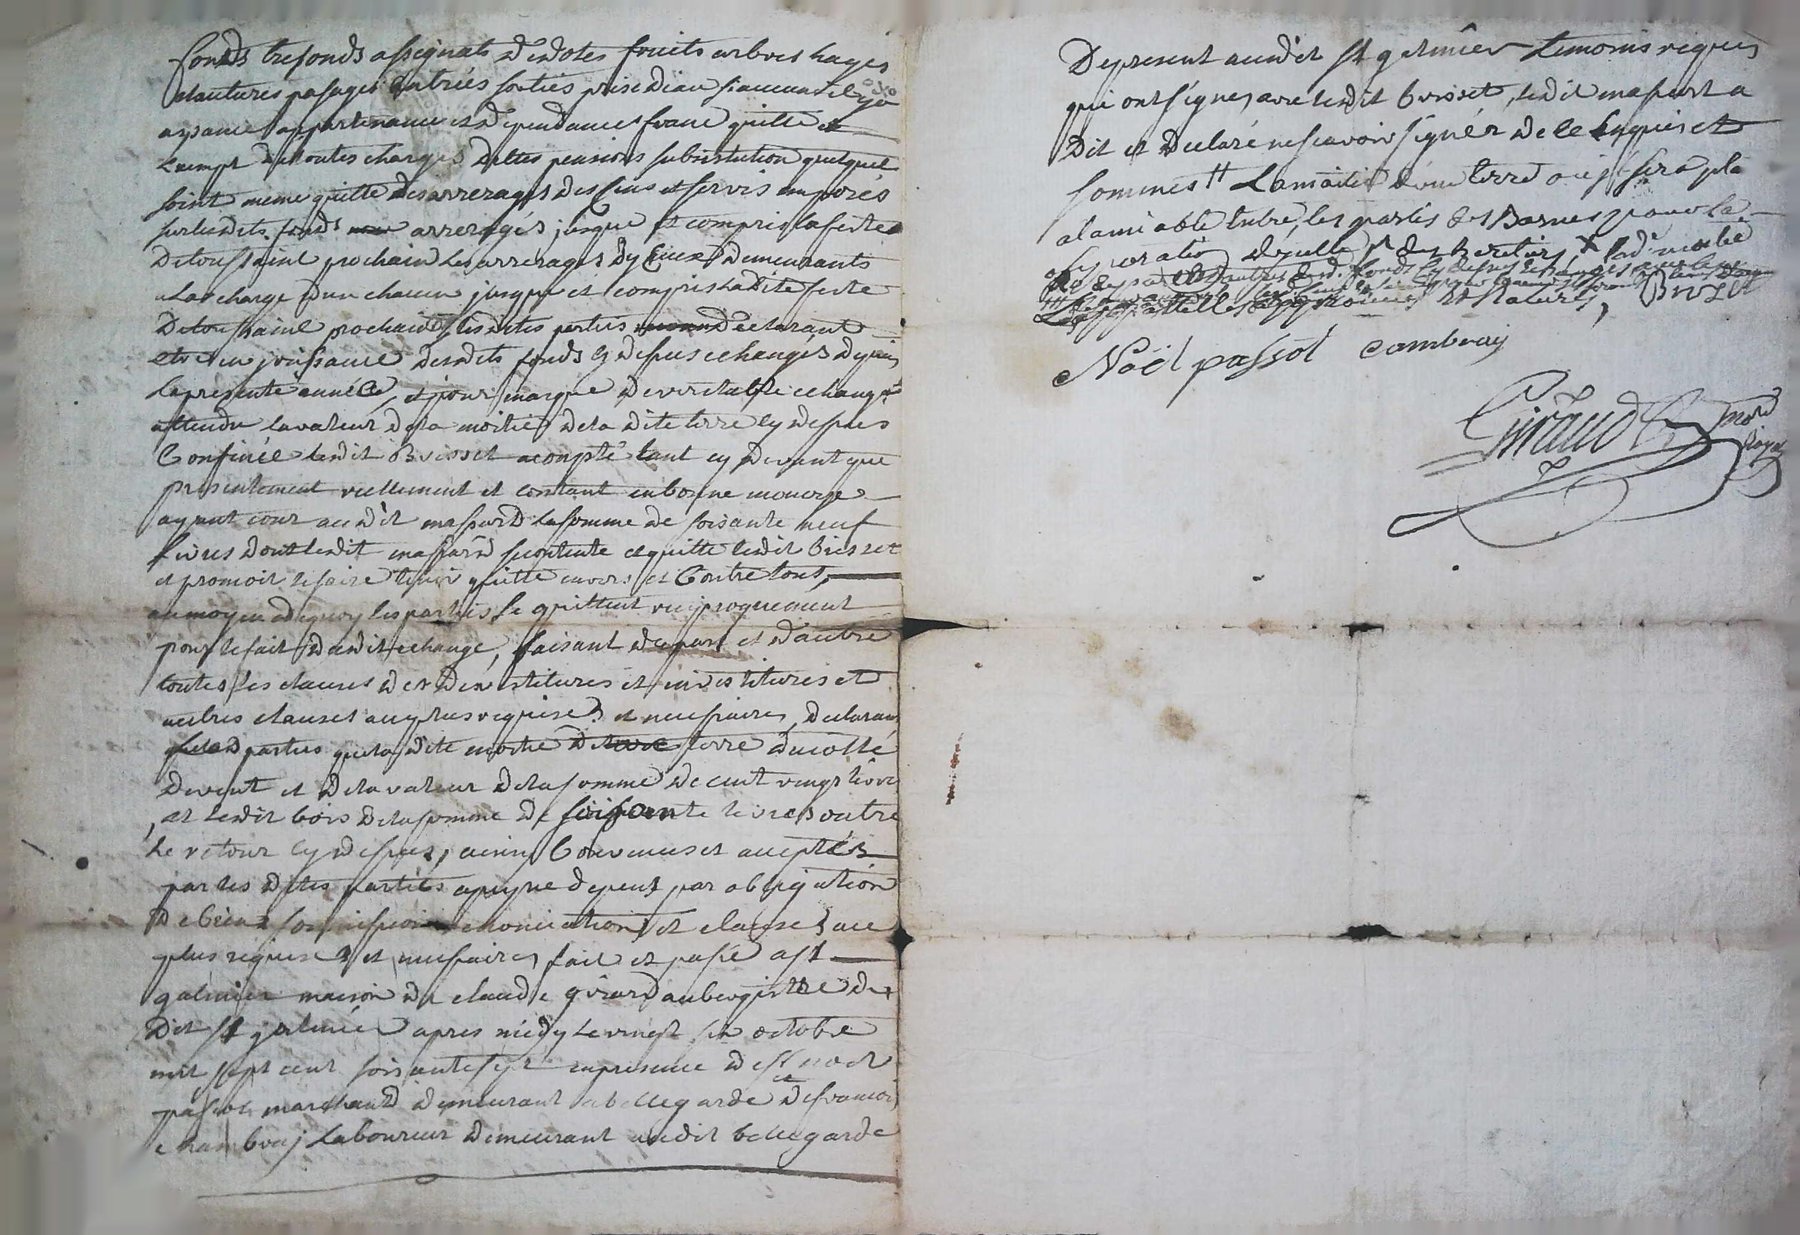 fonds trefonds assignats d'endotes fruits arbres hayes
clautures pasages entrées sorties prise d'eau siaucuns il y a
aysance appartenance et dependances franc quitte et
exempt de toutes charges deltes pensions subristution quelque
soint meme quitte des arrerages des cens et servis imposés
surlesdits fonds arreragés jusque et compris la feste
de toussaint prochain les arrerages dyceux demeurants
a la charge d'un chacun jusque et compris la dite feste
de toussaint prochain lesdites parties declarant
etre en jouissance desdits fonds cy dessus echangés depuis
la presente année, et pour marque de veritable echange
attendu la valeur de la moitié de la dite terre cy dessus
Confinée ledit Brisset a compté tant cy devant que
presentement reellement et contant en bonne monoye
ayant cour audit massard la somme de soisante neuf
livres dont ledit massard se contente et quitte ledit brisset
et promoit le faire tenir quitte envers et Contre tout,
au moyen de quoy les parties se quittent reciproquement
pour le fait dudit echange, faisant de part et d'autre
toutes les clauses de devestitures et investitures et
autres clauses au plus requises et necessaires, declarans
lesd parties que la dite moitié de terre du collé
devent et de la valeur de la somme de cent vingt livres
, et ledit bois de la somme de soissante livres outre
le retour cy dessus, ainsy Convenus et acceptés
par les dites parties a peyne depens par obligation
de biens soumission renonciation et clauses au
plus requises et necessaires, fait et passé a st
galmier maison de claude girard aubergiste du
dit st galmier apres midy le vingt six octobre
mil sept cent soisante sept en presence de sr noel
passot marchand demeurant a bellegarde et de francois
chambovoy laboureur demeurant audit bellegarde
De present audit st galmier temoins requis
qui ont signés avec ledit brisset, ledit massard a
dit et declaré ne scavoir signér de ce enquis et
sommes # la moitié d'une terre ou il sera pla
a lamiable entre les parties des Bornes pour la
separation dycelle
Brizet
Noël passot cambovoy
Giraud nore royal